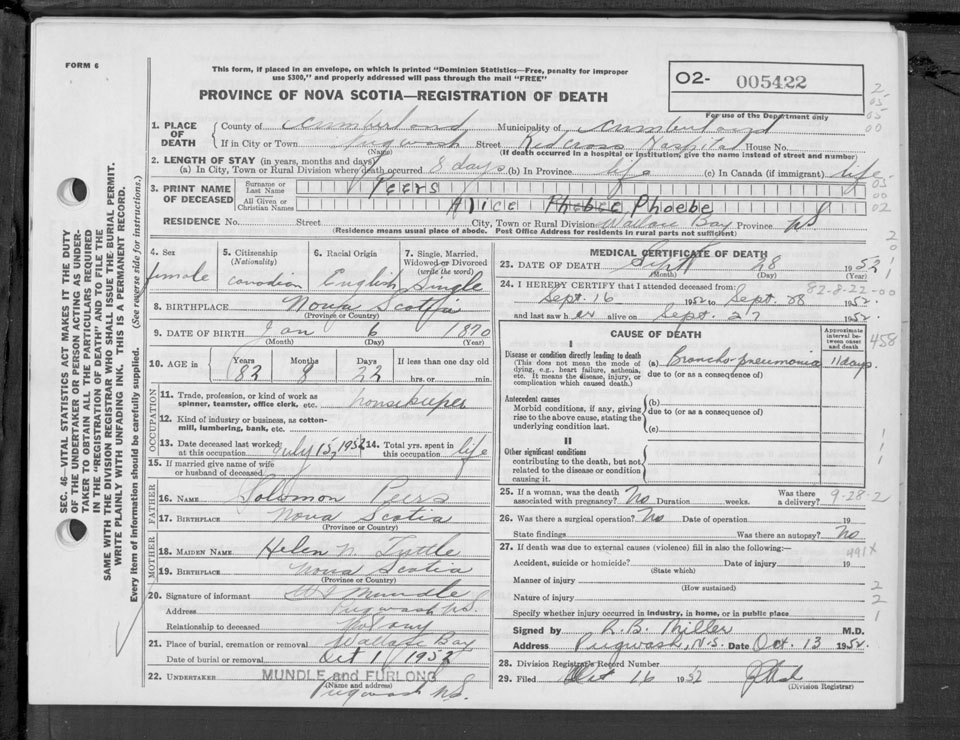 FORM 6
This form, if placed in an envelope, on which is printed "Dominion Statistics—Free, penalty for improper
use $300," and properly addressed will pass through the mail "FREE"
O2- 005422
PROVINCE OF NOVA SCOTIA—REGISTRATION OF DEATH
For use of the Department only
2-
05-
05-
00
1. PLACE OF DEATH
County of Cumberland Municipality of Cumberland
If in City or Town Pugwash Street Red Cross Hospital House No.
(Name) (If death occurred in a hospital or institution, give the name instead of street and number)
2. LENGTH OF STAY (in years, months and days)
(a) In City, Town or Rural Division where death occurred 8 days (b) In Province life (c) In Canada (if immigrant) life
3. PRINT NAME OF DECEASED
Surname or Last Name Peers
All Given or Christian Names Alice Phoebe
05-
00
02
RESIDENCE No. Street City, Town or Rural Division Wallace Bay Province NS
(Residence means usual place of abode. Post Office Address for residents in rural parts not sufficient)
4. Sex female
5. Citizenship (Nationality) Canadian
6. Racial Origin English
7. Single, Married, Widowed or Divorced (write the word) Single
8. BIRTHPLACE Nova Scotia
(Province or Country)
9. DATE OF BIRTH Jan 6 1870
(Month) (Day) (Year)
10. AGE in Years 82 Months 8 Days 22 If less than one day old
hrs. or min.
OCCUPATION
11. Trade, profession, or kind of work as
spinner, teamster, office clerk, etc. housekeeper
12. Kind of industry or business, as cotton-
mill, lumbering, bank, etc.
13. Date deceased last worked at this occupation July 15, 1952 14. Total yrs. spent in this occupation life
15. If married give name of wife
or husband of deceased
FATHER
16. NAME Solomon Peers
17. BIRTHPLACE Nova Scotia
(Province or Country)
MOTHER
18. MAIDEN NAME Helen N. Tuttle
19. BIRTHPLACE Nova Scotia
(Province or Country)
20. Signature of informant Mundle
Address Pugwash NS.
Relationship to deceased Not any
21. Place of burial, cremation or removal Wallace Bay
Date of burial or removal Oct 1 1952
22. UNDERTAKER MUNDLE and FURLONG
(Name and address)
Pugwash NS.
MEDICAL CERTIFICATE OF DEATH
23. DATE OF DEATH Sept 28 1952
(Month) (Day) (Year)
24. I HEREBY CERTIFY that I attended deceased from: 82-8-22-00
Sept. 16 1952 to Sept. 28 1952.
and last saw her alive on Sept. 27 1952.
CAUSE OF DEATH
Approximate interval between onset and death
458
I
Disease or condition directly leading to death
(This does not mean the mode of
dying, e.g., heart failure, asthenia,
etc. It means the disease, injury, or
complication which caused death.)
(a) Broncho pneumonia 11 days.
due to (or as a consequence of)
Antecedent causes
Morbid conditions, if any, giving
rise to the above cause, stating the
underlying condition last.
(b)
due to (or as a consequence of)
(c)
II
Other significant conditions
contributing to the death, but not
related to the disease or condition
causing it.
25. If a woman, was the death
associated with pregnancy? No Duration weeks. Was there a delivery? 9-28-2
26. Was there a surgical operation? No Date of operation 19
State findings Was there an autopsy? No
27. If death was due to external causes (violence) fill in also the following:—
491x
Accident, suicide or homicide? Date of injury 19
(State which)
Manner of injury
(How sustained)
Nature of injury
Specify whether injury occurred in industry, in home, or in public place
Signed by R. B. Miller M.D.
Address Pugwash, N.S. Date Oct. 13 1952.
28. Division Registrar's Record Number
29. Filed Oct 16 1952
(Division Registrar)
SEC. 46— VITAL STATISTICS ACT MAKES IT THE DUTY
OF THE UNDERTAKER OR PERSON ACTING AS UNDER-
TAKER TO OBTAIN ALL THE PARTICULARS REQUIRED
IN THE "REGISTRATION OF DEATH" AND TO FILE THE
SAME WITH THE DIVISION REGISTRAR WHO SHALL ISSUE THE BURIAL PERMIT.
WRITE PLAINLY WITH UNFADING INK. THIS IS A PERMANENT RECORD.
Every item of information should be carefully supplied. (See reverse side for instructions.)